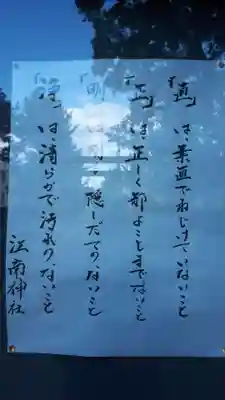 「直」は、素直でねじけていないこと
「正」は、正しく邪よこしまでないこと
「明」は、隠しだてのないこと
「浄」は、清らかで汚れのないこと
江南神社